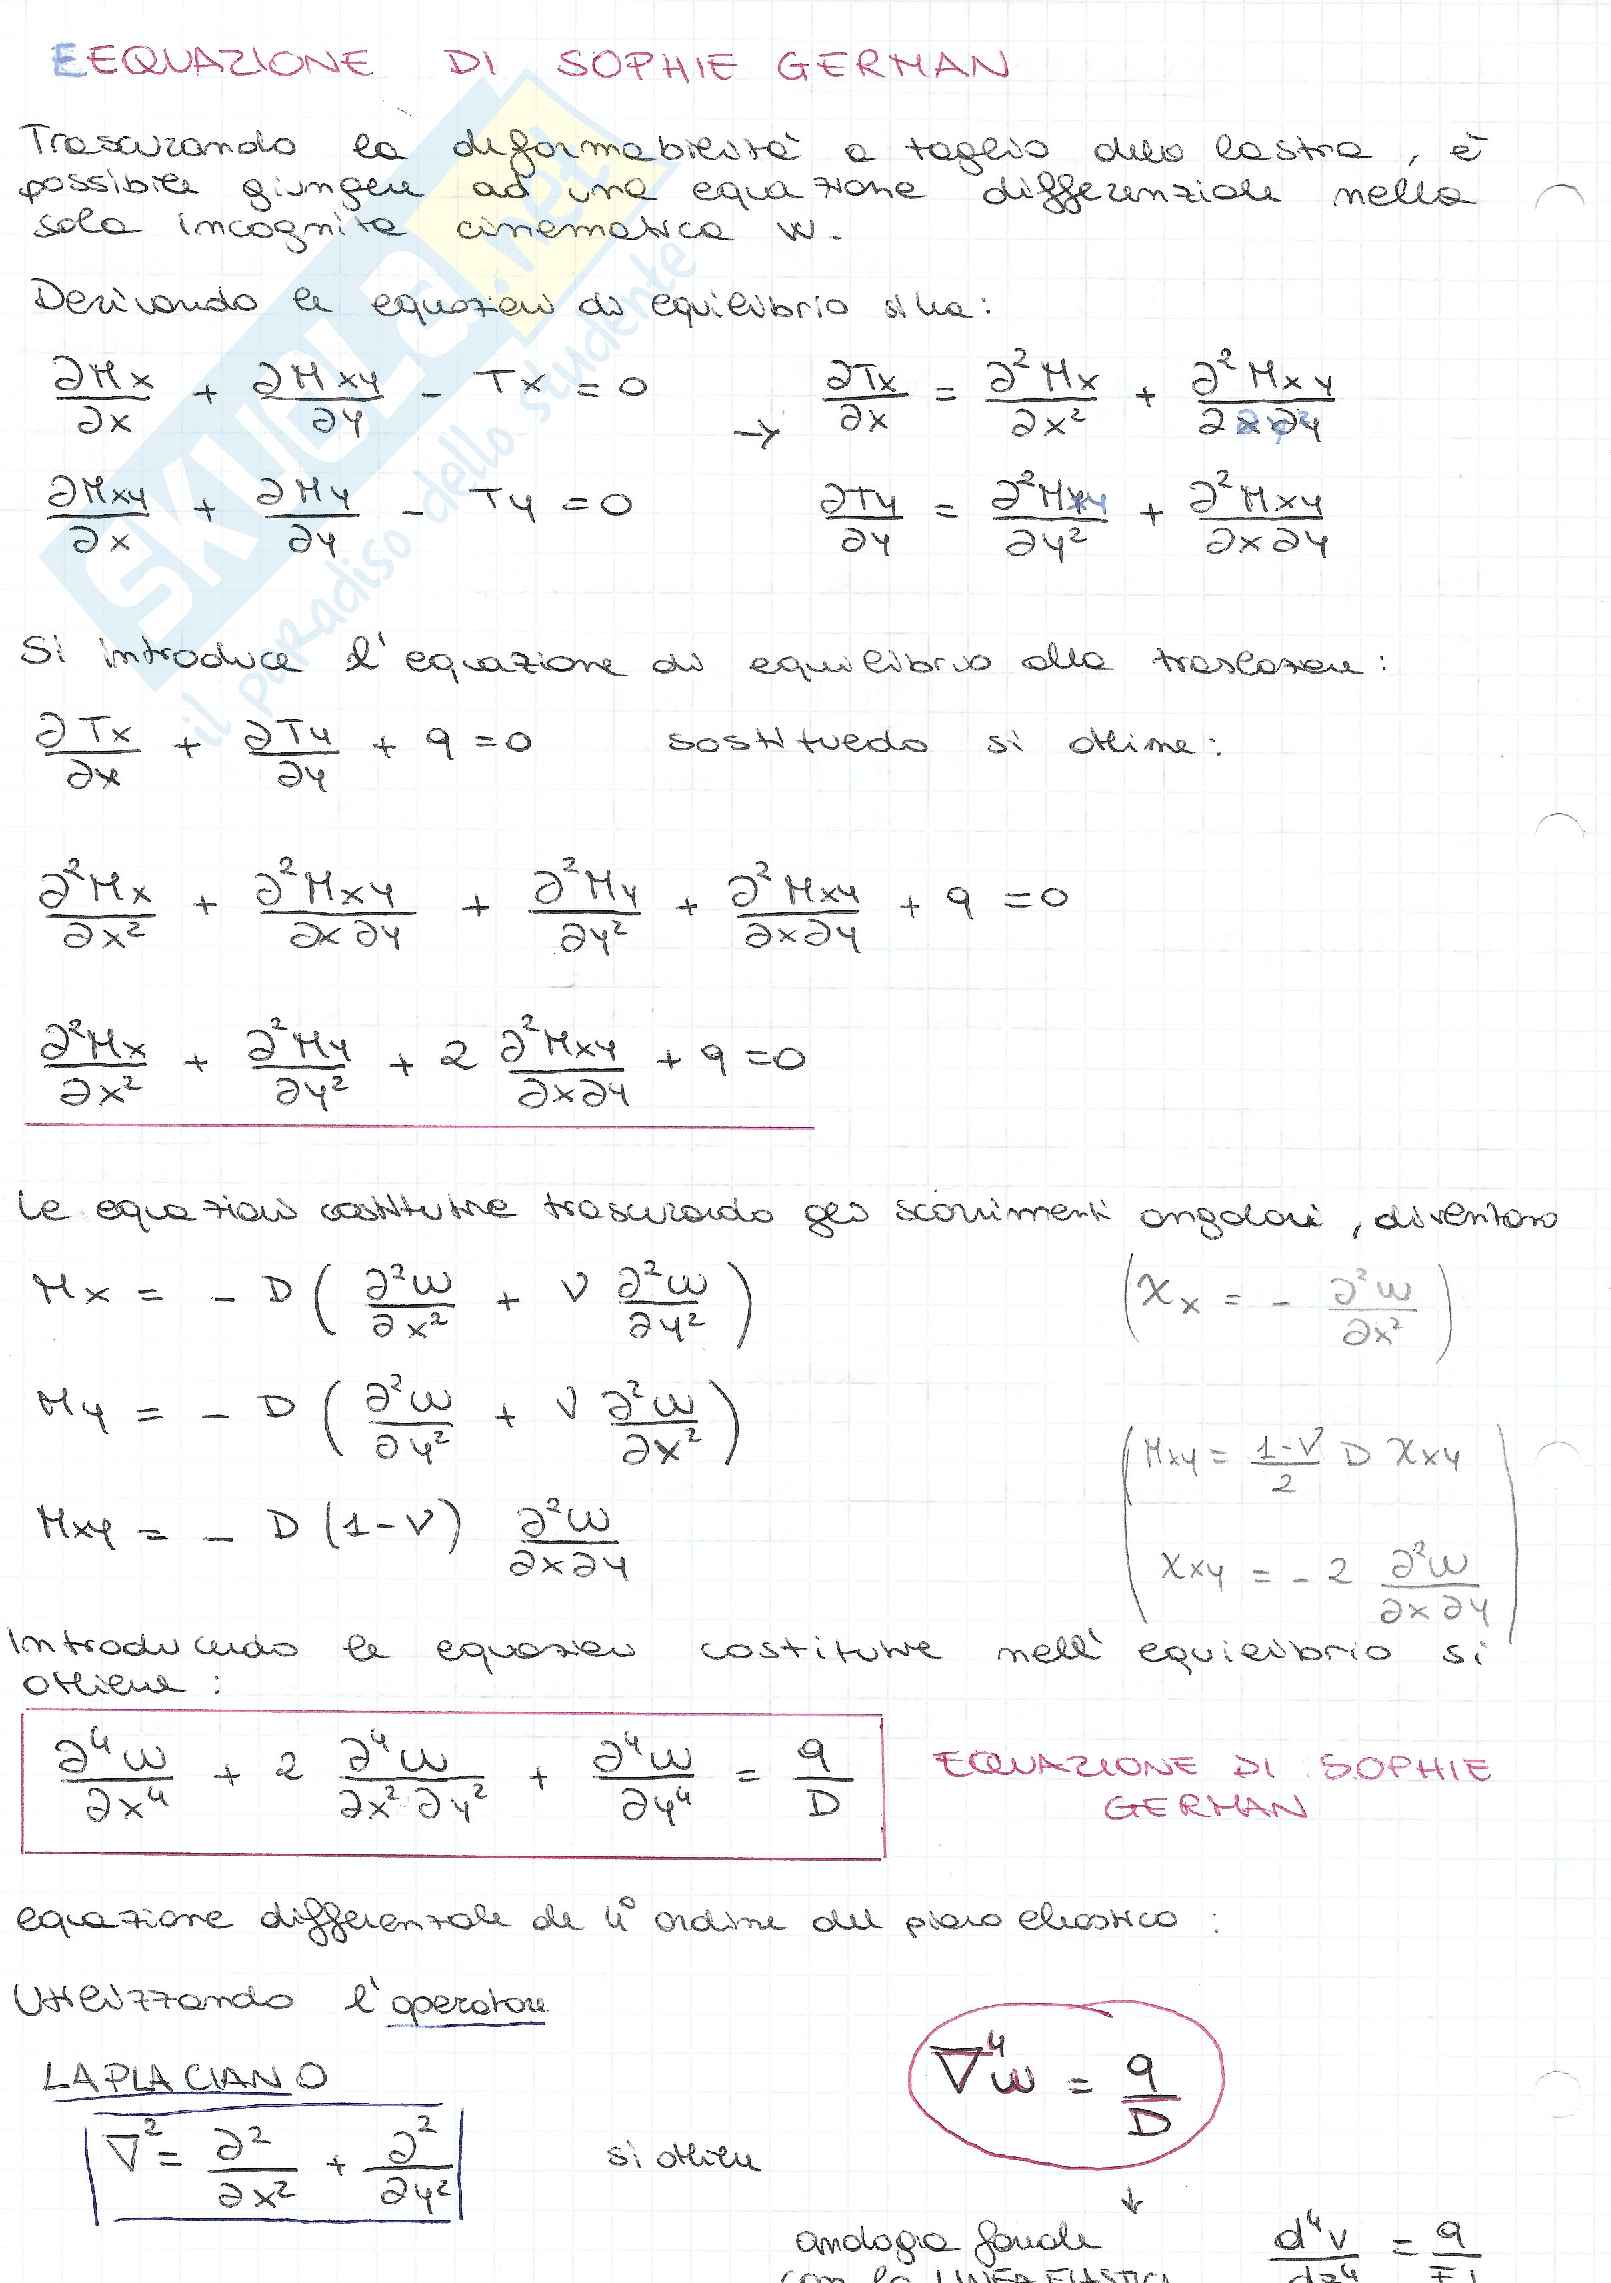 EEQUAZIONE DI SOPHIE GERMAN
Trascurando la deformabilità a taglio della lastra, è
possibile giungere ad una equazione differenziale nella
sola incognita cinematica w.
Derivando le equazioni di equilibrio si ha:
∂Mx/∂x + ∂Mxy/∂y - Tx = 0 → ∂Tx/∂x = ∂²Mx/∂x² + ∂²Mxy/∂x∂y
∂Mxy/∂x + ∂My/∂y - Ty = 0 ∂Ty/∂y = ∂²My/∂y² + ∂²Mxy/∂x∂y
Si introduce l'equazione di equilibrio alla traslazione:
∂Tx/∂x + ∂Ty/∂y + q = 0 sostituedo si ottiene:
∂²Mx/∂x² + ∂²Mxy/∂x∂y + ∂²My/∂y² + ∂²Mxy/∂x∂y + q = 0
∂²Mx/∂x² + ∂²My/∂y² + 2 ∂²Mxy/∂x∂y + q = 0
Le equazioni costitutive trascurando gli scorrimenti angolari, diventano
Mx = - D (∂²w/∂x² + ν ∂²w/∂y²) (χx = - ∂²w/∂x²)
My = - D (∂²w/∂y² + ν ∂²w/∂x²)
(Mxy = 1-ν/2 D χxy
Mxy = - D (1-ν) ∂²w/∂x∂y
χxy = - 2 ∂²w/∂x∂y)
Introducendo le equazioni costitutive nell'equilibrio si
ottiene:
∂⁴w/∂x⁴ + 2 ∂⁴w/∂x²∂y² + ∂⁴w/∂y⁴ = q/D EQUAZIONE DI SOPHIE
GERMAN
equazione differenziale del 4° ordine del piano elastico:
Utilizzando l'operatore
LAPLACIANO
∇⁴w = q/D
∇² = ∂²/∂x² + ∂²/∂y² si ottiene
↓
analogia formale d⁴v/dz⁴ = q/EI
con la LINEA ELASTICA
SKUOLA.net
il paradiso dello studente